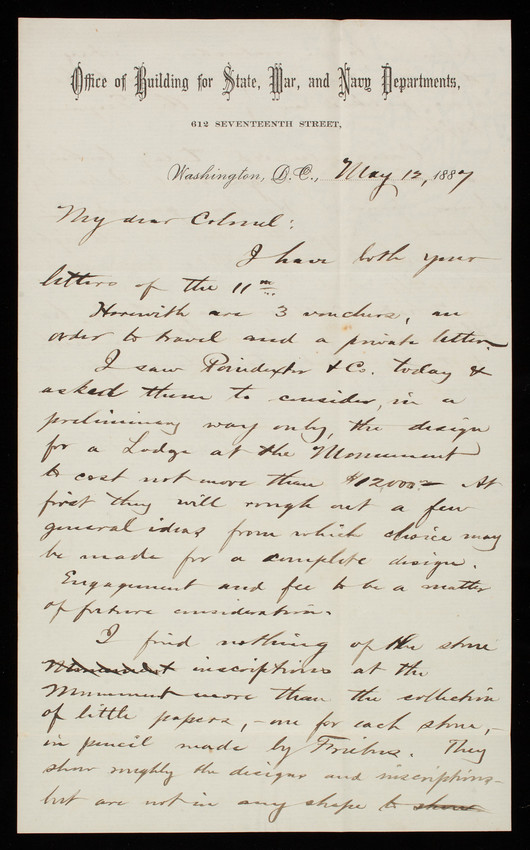 Office of Building for State, War, and Navy Departments,
612 SEVENTEENTH STREET,
Washington, D.C., May 12, 1887
My dear Colonel:
I have both your
letters of the 11th.
Herewith are 3 vouchers, an
order to travel and a private letter.
I saw Poindexter & Co. today &
asked them to consider, in a
preliminary way only, the design
for a Lodge at the Monument
to cost not more than $12,000.00 At
first they will rough out a few
general ideas from which choice may
be made for a complete design.
Engagement and fee to be a matter
of future consideration.
I find nothing of the stone
Monument inscriptions at the
Monument more than the collection
of little papers, - one for each stone, -
in pencil made by Friebus. They
show roughly the designs and inscriptions -
but are not in any shape to show